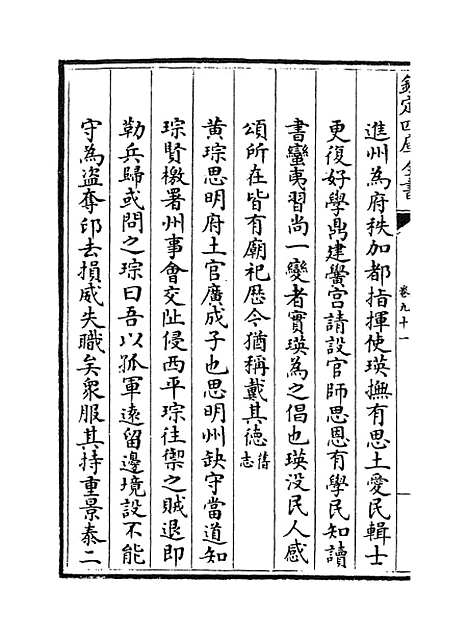 欽定四庫全書
卷九十一
進州為府秩加都指揮使瑛撫有思土愛民輯士
更復好學鼎建黌宫請設官師思恩有學民知讀
書蠻夷習尚一變者實瑛為之倡也瑛没民人感
頌所在皆有廟祀歴今猶稱戴其徳舊志
黄琮思明府土官廣成子也思明州缺守當道知
琮賢檄署州事會交阯侵西平琮往禦之賊退即
勒兵歸或問之琮曰吾以孤軍遠留邊境設不能
守為盗奪印去損威失職矣衆服其持重景泰二